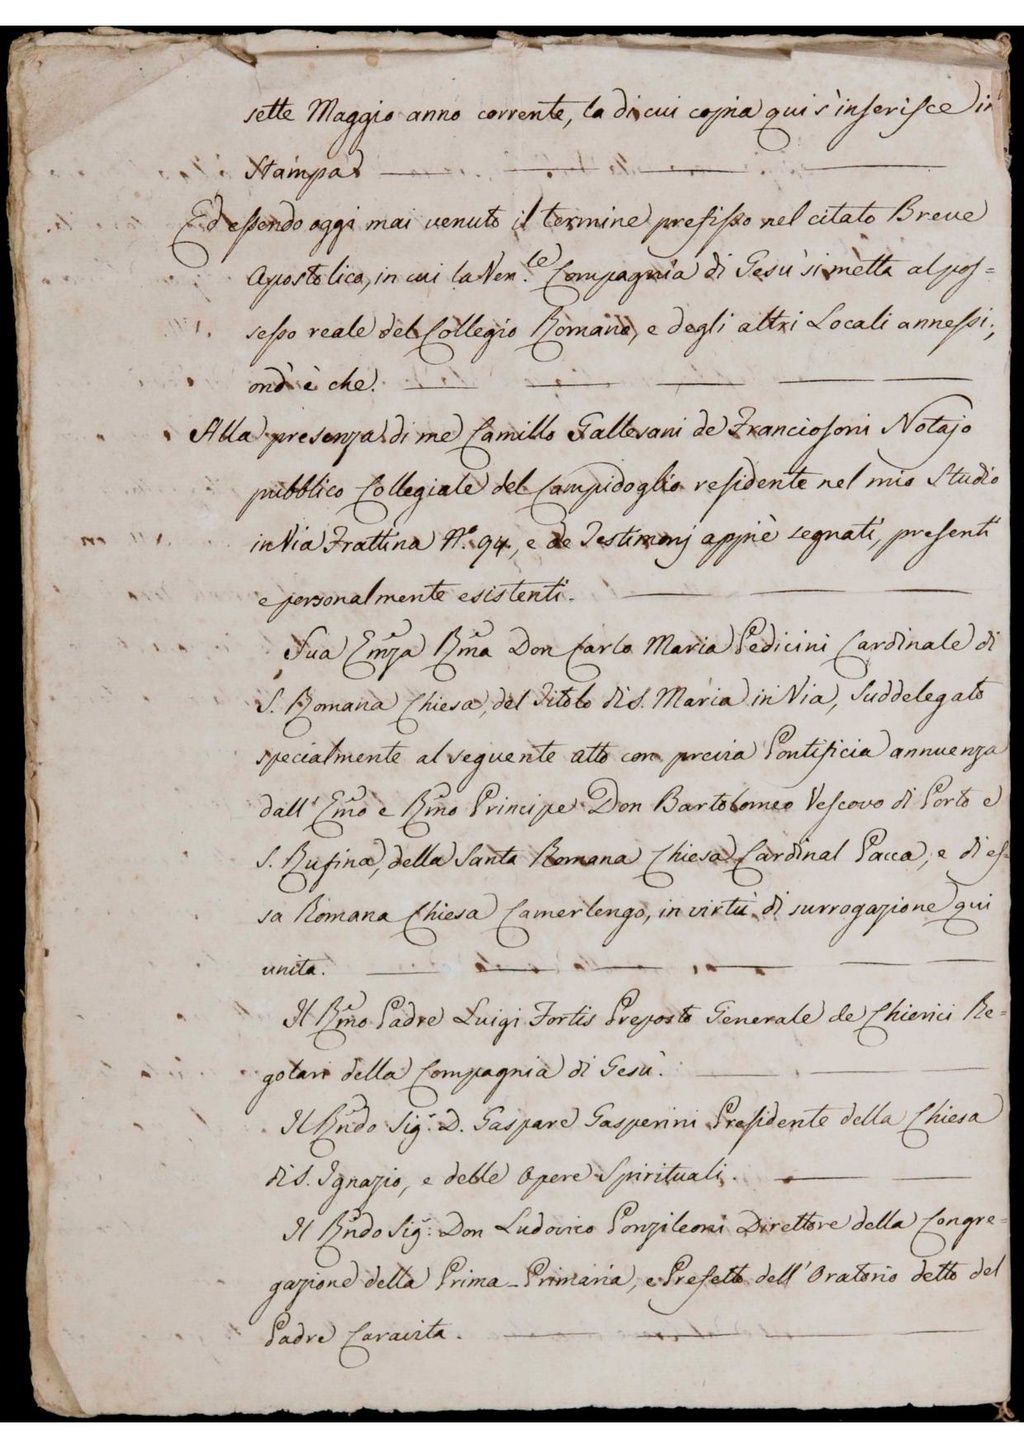 sette Maggio anno corrente, la di cui copia qui s'inserisce in
Stampa
Ed essendo oggi mai venuto il termine prefisso nel citato Breve
Apostolico, in cui la Ven.le Compagnia di Gesù si metta al pos=
sesso reale del Collegio Romano, e degli altri Locali annessi;
ond' è che.
Alla presenza di me Camillo Gallesani de Franciosoni Notajo
pubblico Collegiale del Campidoglio residente nel mio Studio
in Via Frattina N.º 94, e de Testimonj appiè segnati, presenti
e personalmente esistenti.
Sua Emza Rma Don Carlo Maria Pedicini Cardinale di
S. Romana Chiesa, del Titolo di S. Maria in Via, Suddelegato
specialmente al seguente atto con previa Pontificia annuenza
dall' Emo e Rmo Principe Don Bartolomeo Vescovo di Porto e
S. Rufina, della Santa Romana Chiesa Cardinal Pacca, e di es=
sa Romana Chiesa Camerlengo, in virtù di surrogazione qui
unita.
Il Rmo Padre Luigi Fortis Preposto Generale de Chierici Re=
golari della Compagnia di Gesù.
Il Rndo Sig.r D. Gaspare Gasperini Presidente della Chiesa
di S. Ignazio, e delle Opere Spirituali.
Il Rndo Sig.r Don Ludovico Ponzileoni Direttore della Congre=
gazione della Prima-Primaria, e Prefetto dell' Oratorio detto del
Padre Caravita.